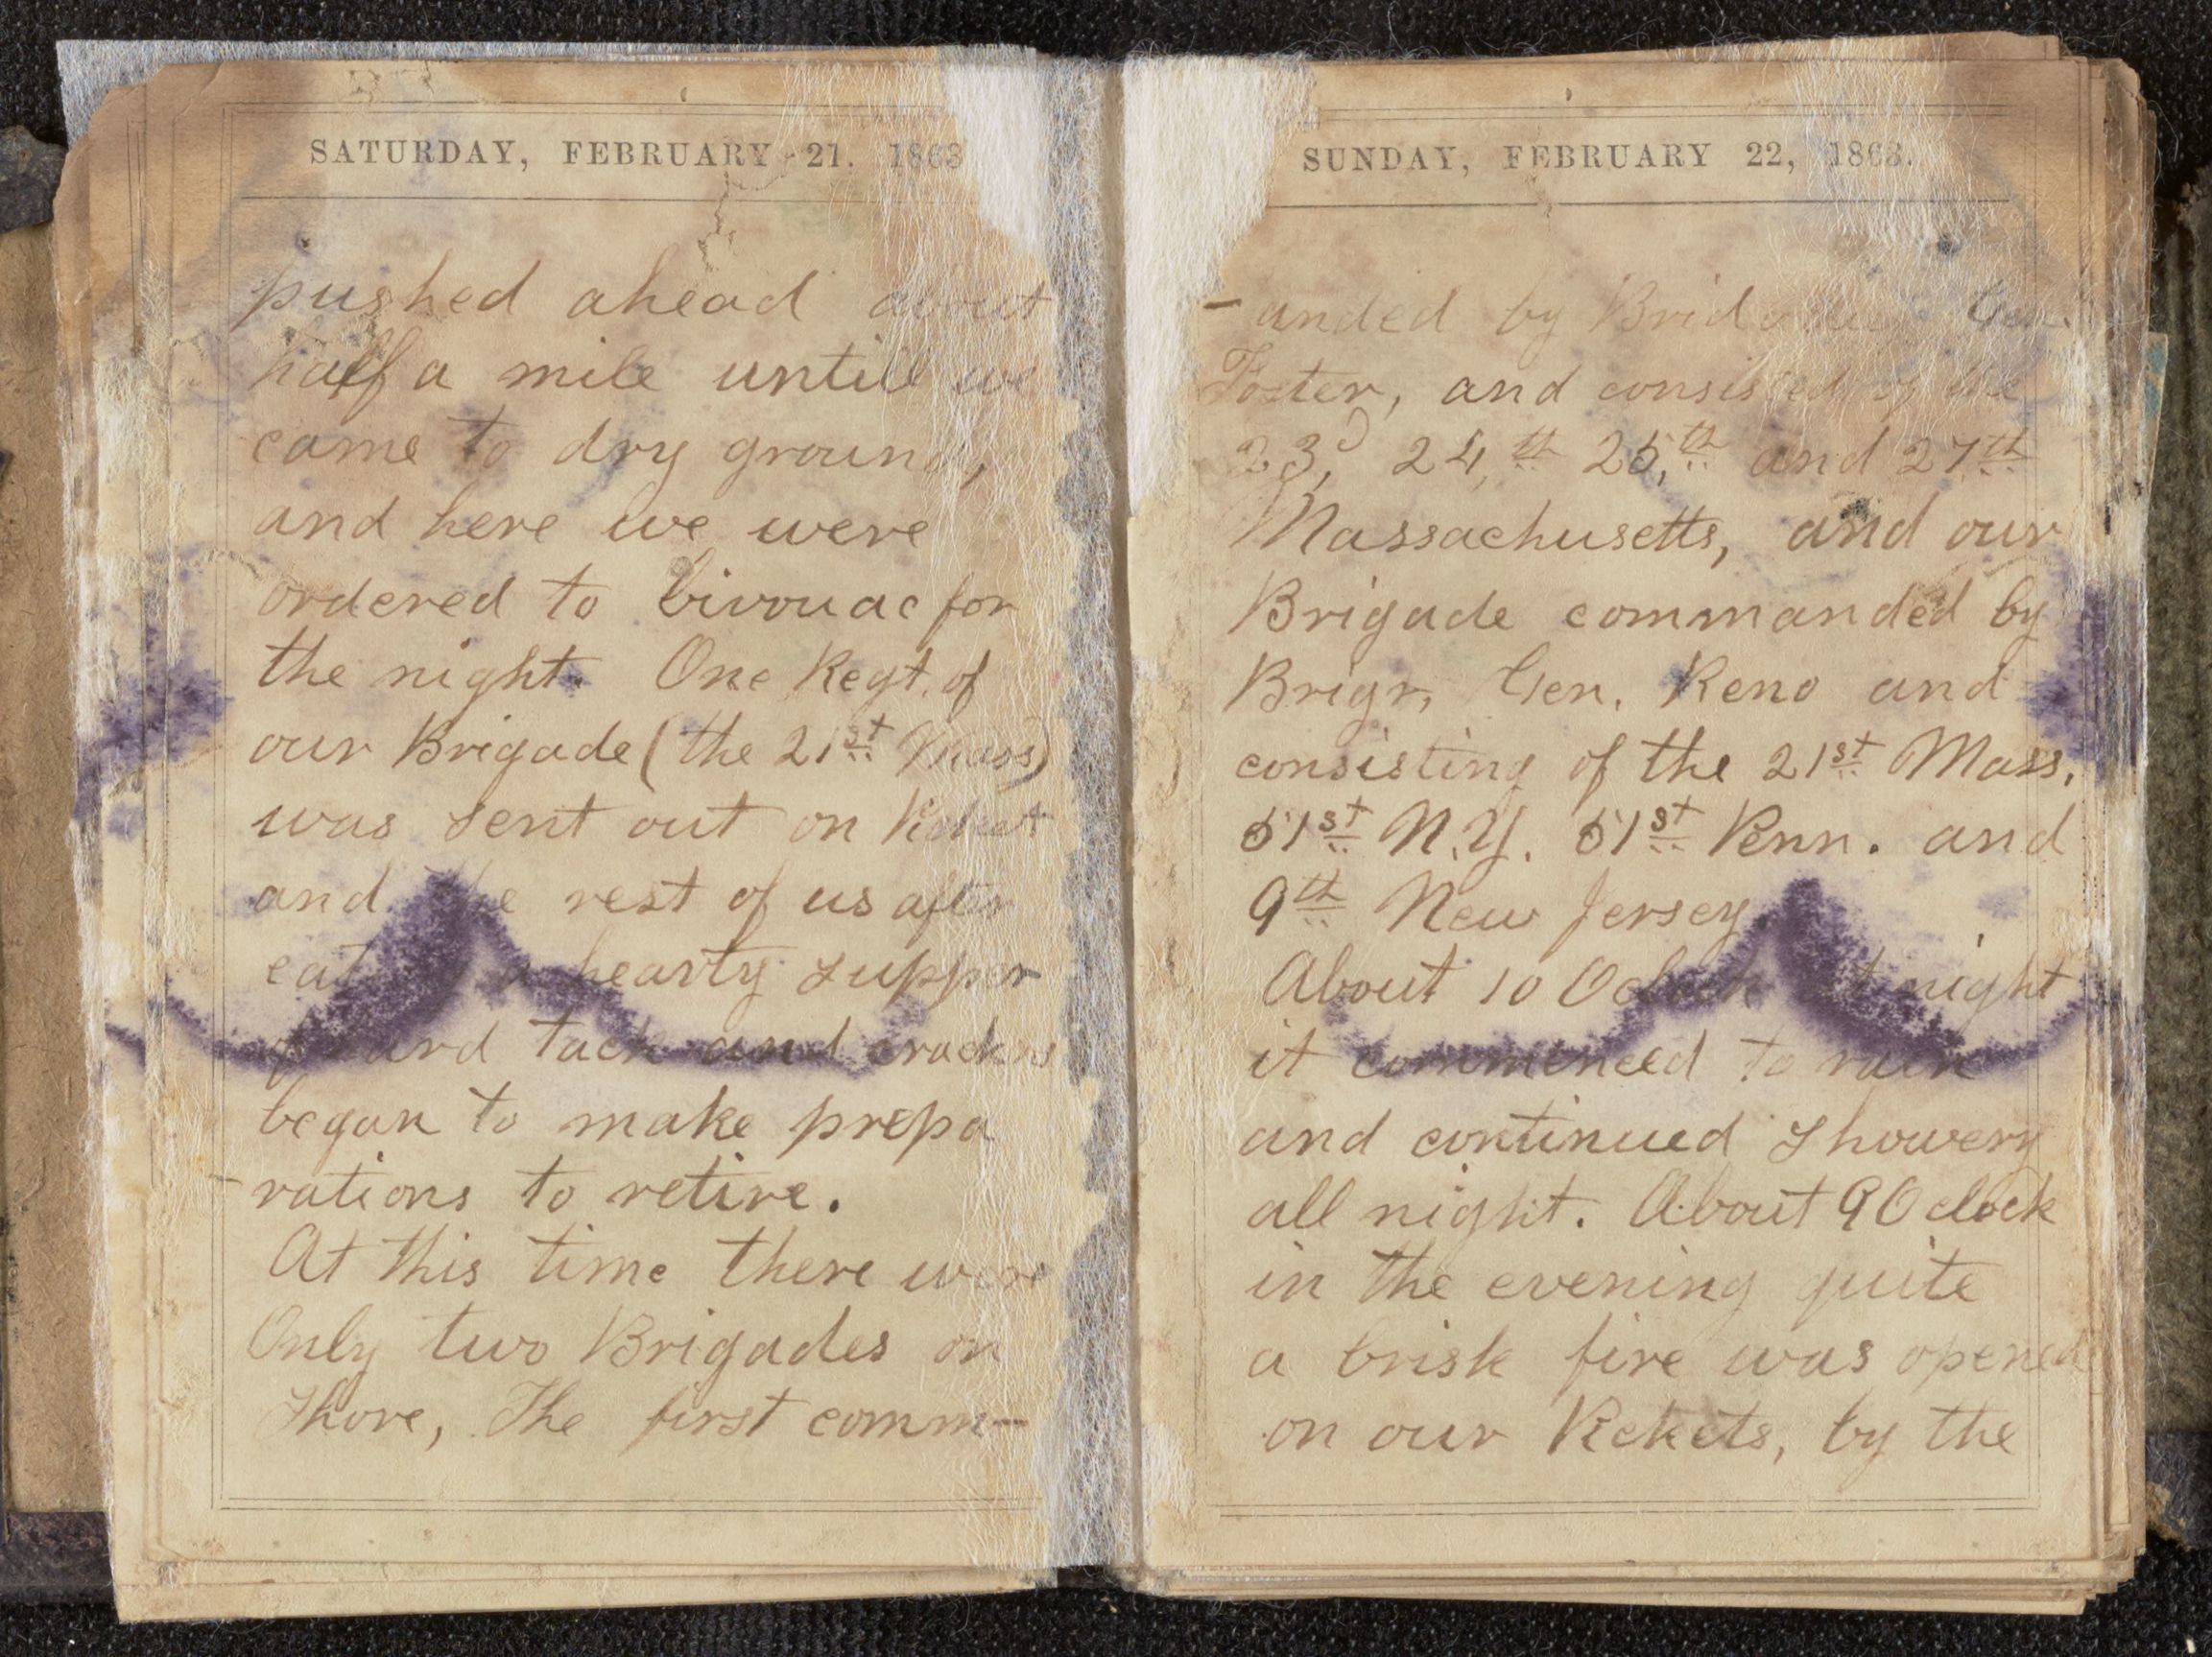 SATURDAY, FEBRUARY 21. 1863
pushed ahead about
half a mile untill we
came to dry ground,
and here we were
ordered to bivouac for
the night. One Regt. of
our Brigade (the 21st Mass)
was sent out on Picket
and the rest of us after
eat a hearty supper
of hard tack and crackers
began to make prepa
-rations to retire.
At this time there were
Only two Brigades on
Shore, The first comm-
SUNDAY, FEBRUARY 22, 1863.
-anded by Bridadier Gen.
Foster, and consisted of the
23,d 24,th 25,th and 27th
Massachusetts, and our
Brigade commanded by
Brigr, Gen. Reno and
consisting of the 21st Mass,
51st N.Y. 51st Penn. and
9th New Jersey
About 10 Oclock at night
it commenced to rain
and continued showery
all night. About 9 Oclock
in the evening quite
a brisk fire was opened
on our Pickets, by the